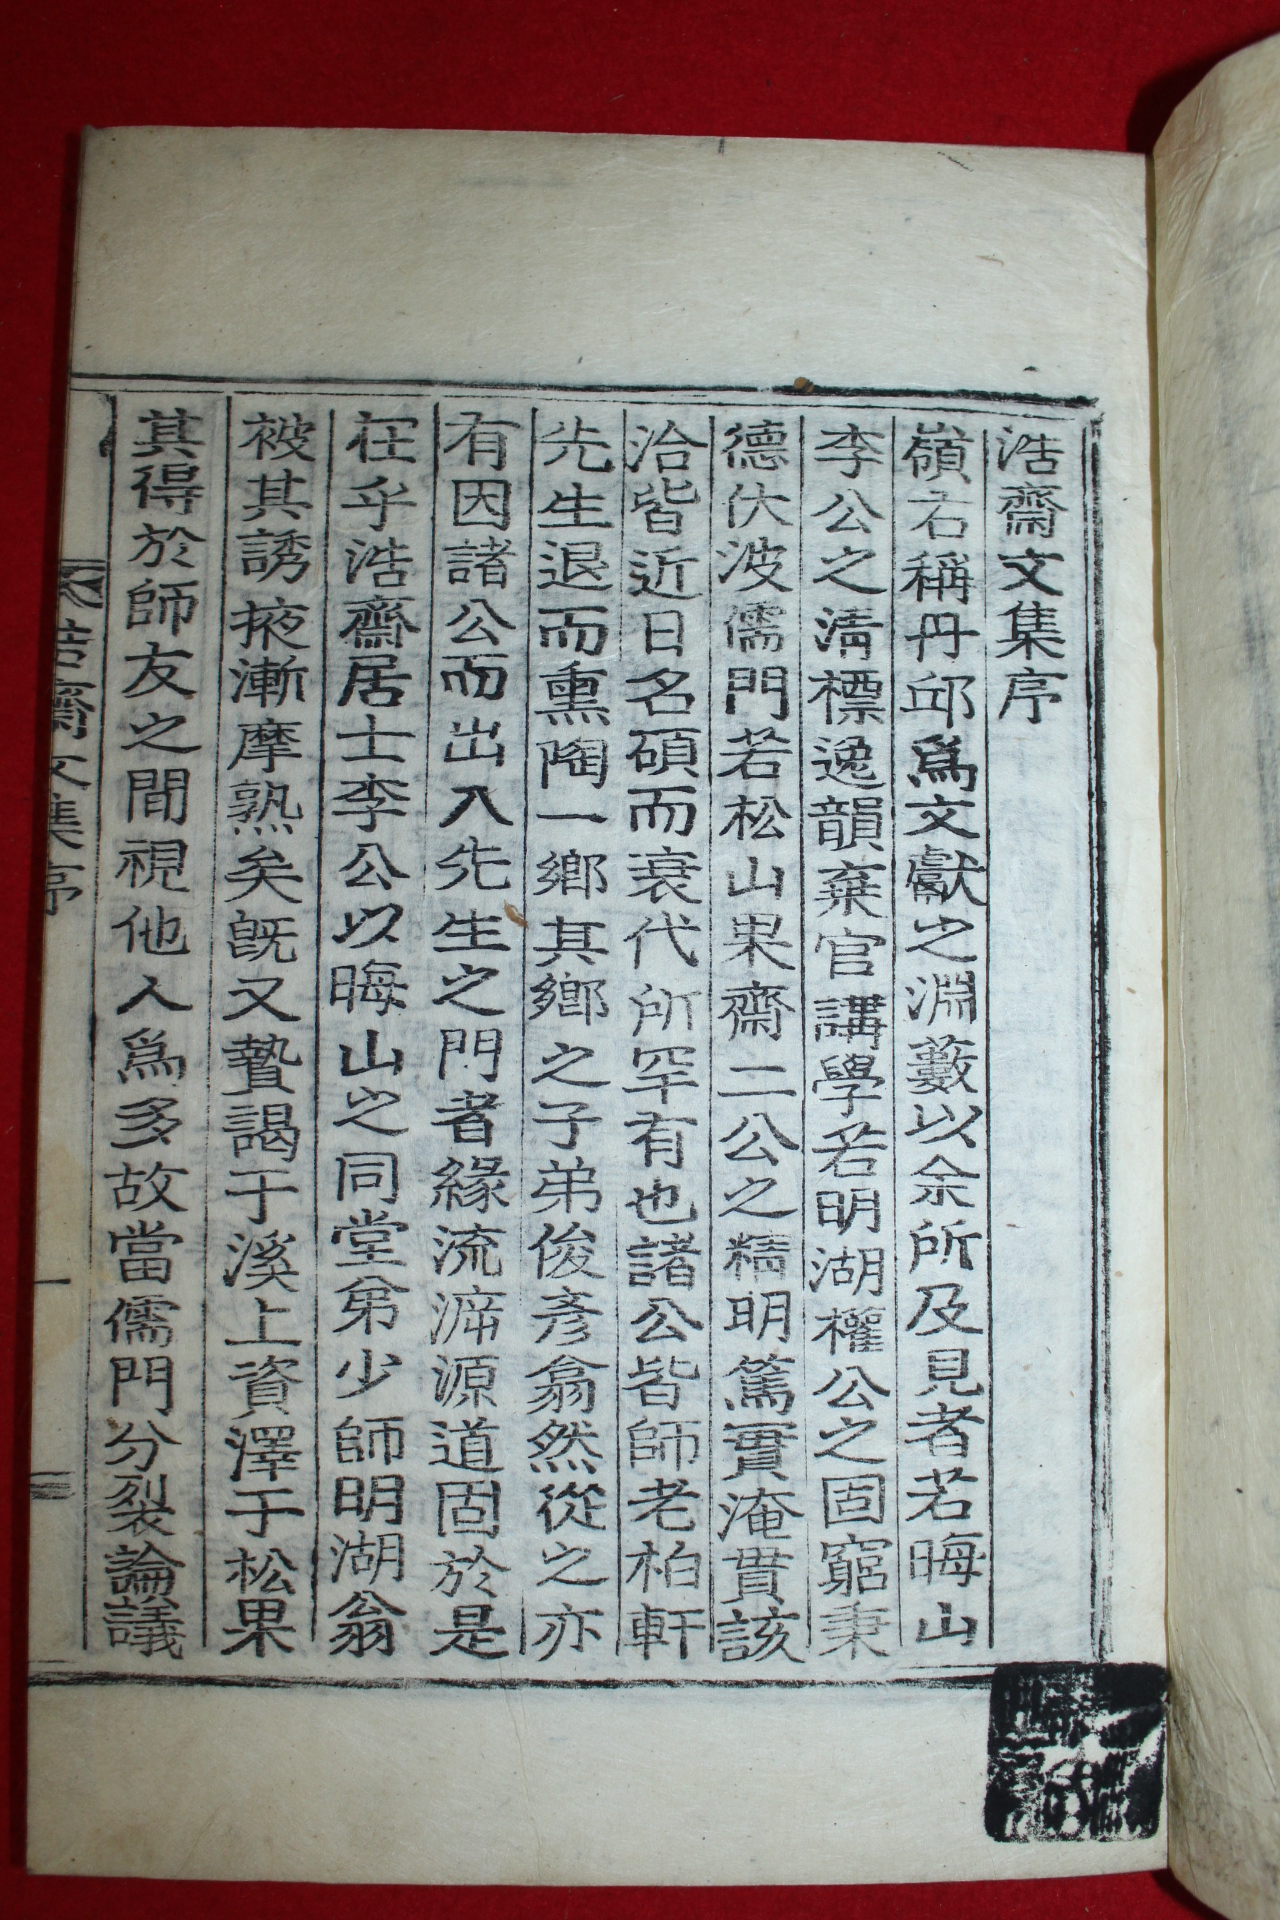 浩齋文集序
嶺右稱丹邱爲文獻之淵藪以余所及見者若晦山
李公之淸標逸韻棄官講學若明湖權公之固窮秉
德伏波儒門若松山果齋二公之精明篤實淹貫該
洽皆近日名碩而衰代所罕有也諸公皆師老柏軒
先生退而熏陶一鄕其鄕之子弟俊彥翕然從之亦
有因諸公而出入先生之門者緣流泝源道固於是
在乎浩齋居士李公以晦山之同堂弟少師明湖翁
被其誘掖漸摩熟矣旣又贄謁于溪上資澤于松果
其得於師友之間視他人爲多故當儒門分裂論議
浩齋文集序
一